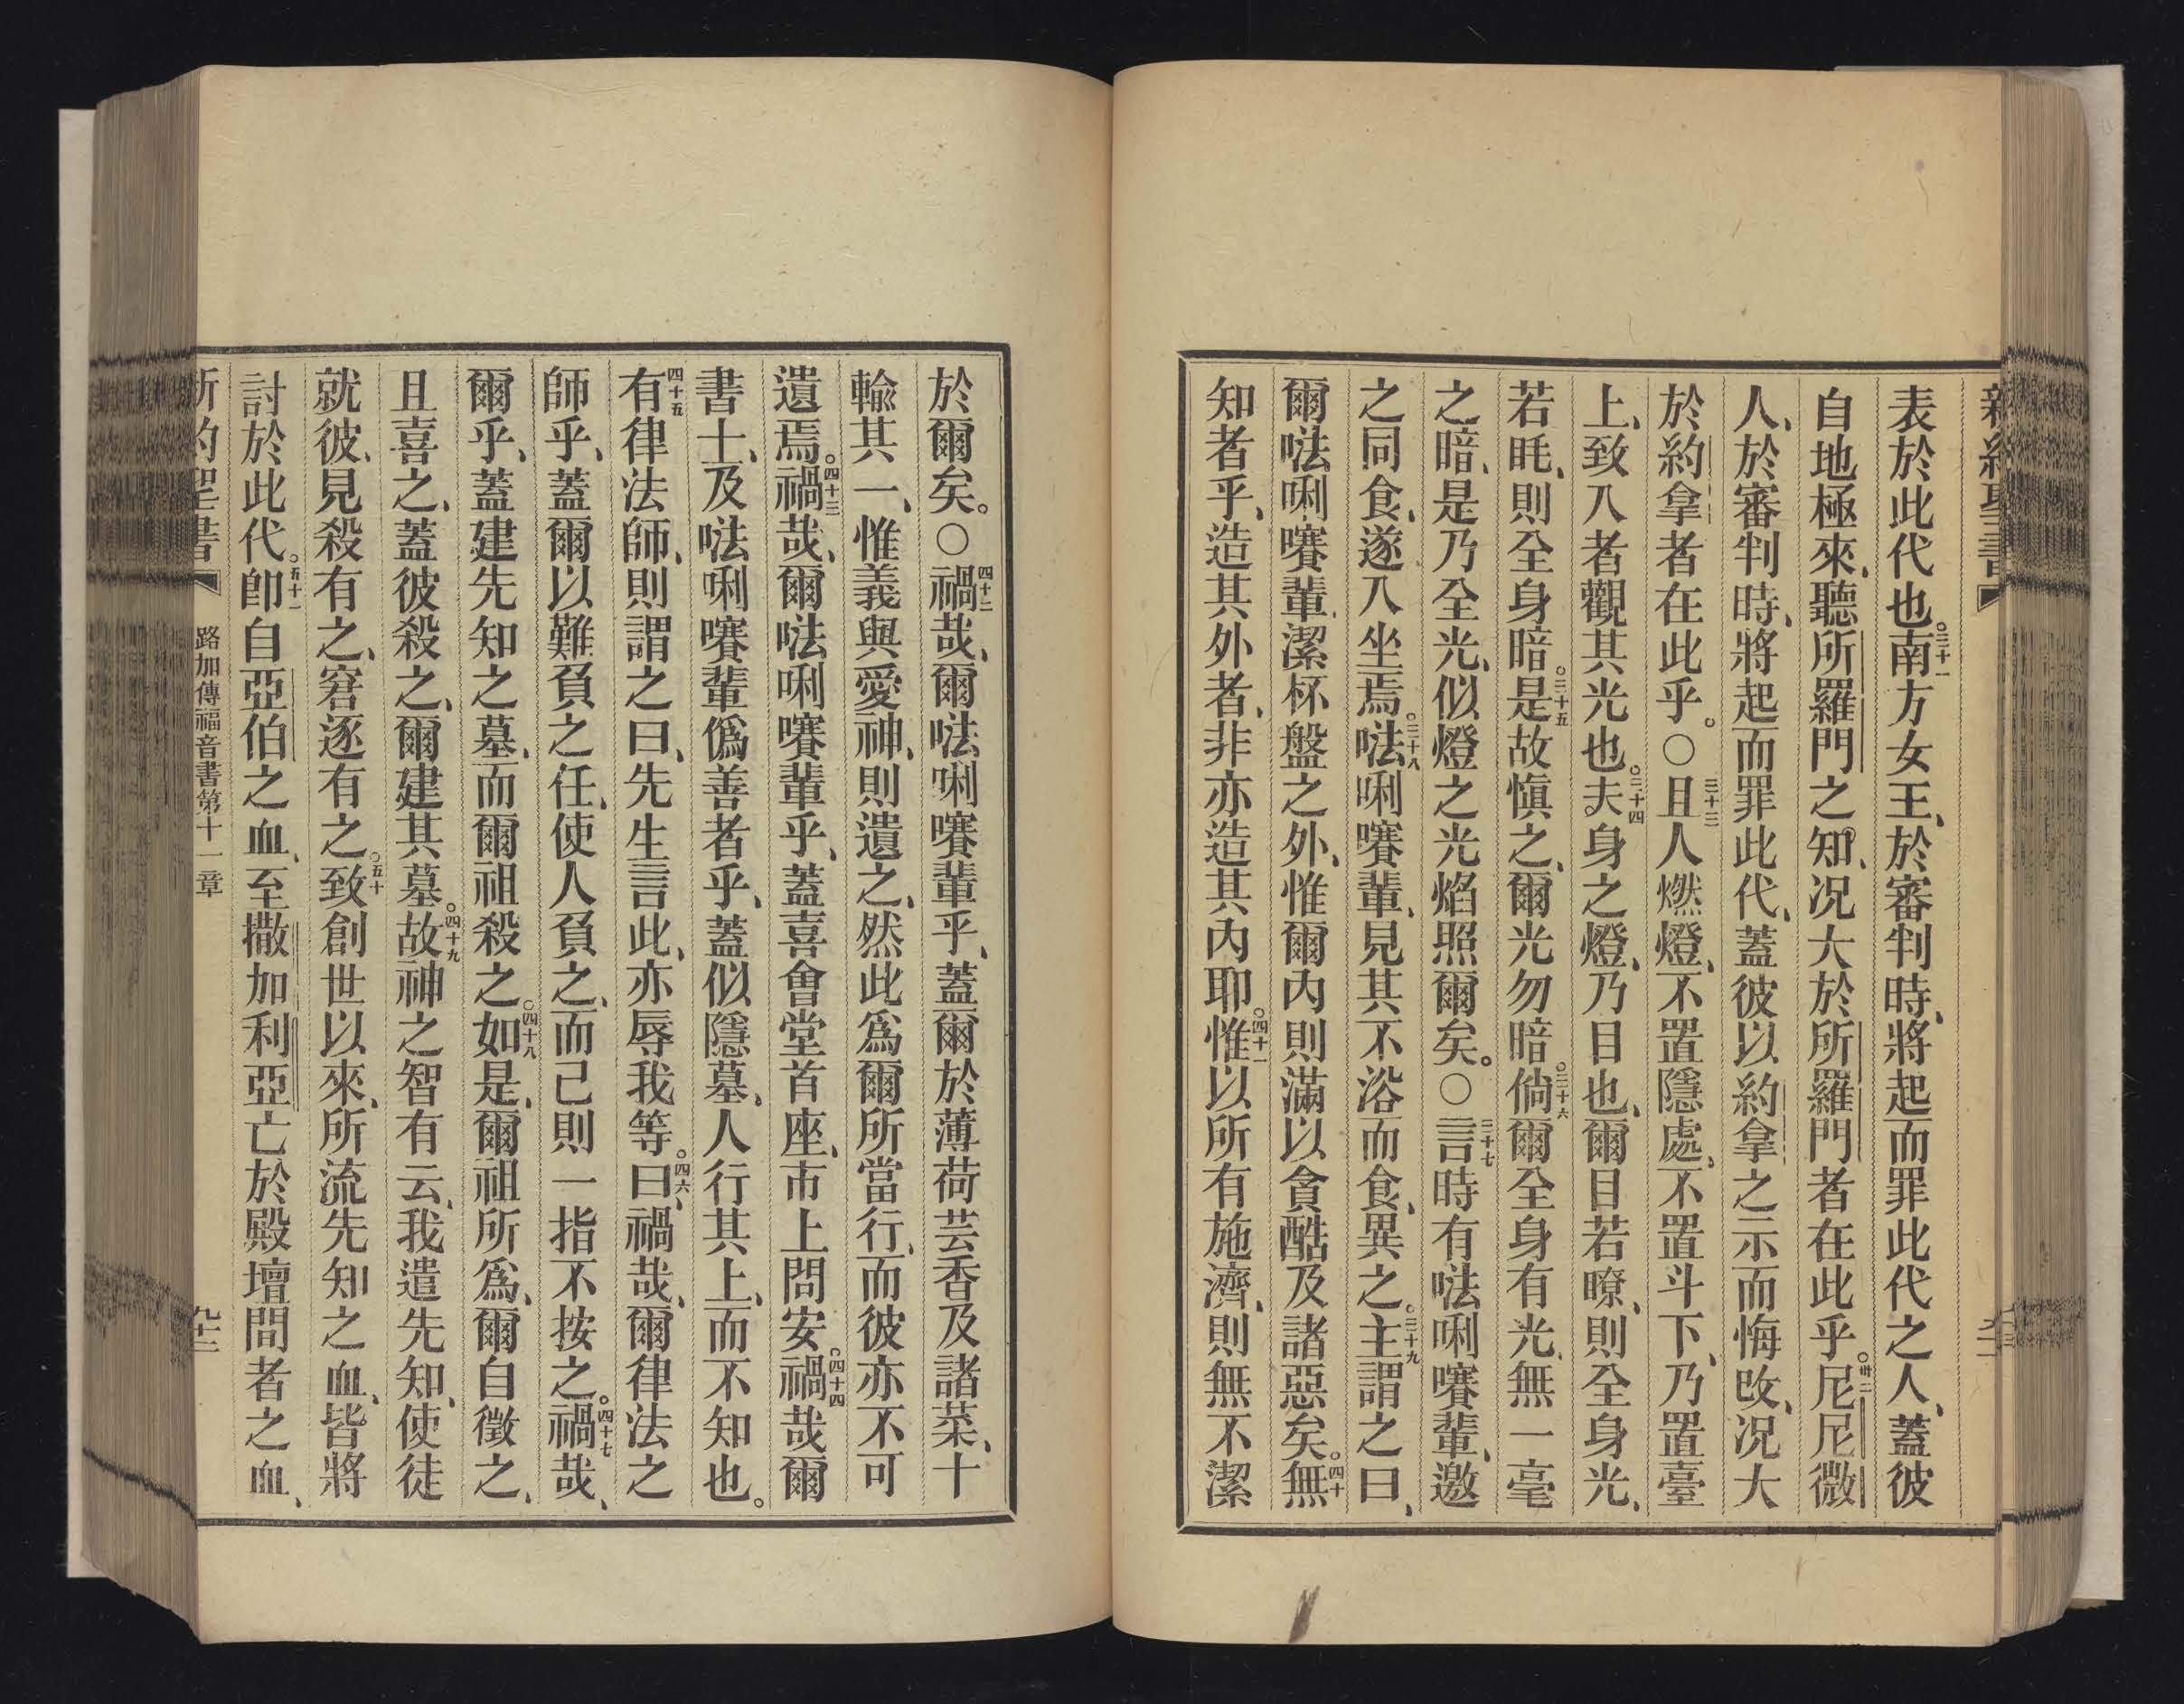 表於此代也。三十一南方女王、於審判時、將起而罪此代之人、蓋彼
自地極來、聽所羅門之知、况大於所羅門者在此乎。卅二尼尼微
人、於審判時、將起而罪此代、蓋彼以約拿之示而悔改、况大
於約拿者在此乎。○三十三且人燃燈、不置隱處、不置斗下、乃置臺
上、致入者觀其光也。三十四夫身之燈、乃目也、爾目若瞭、則全身光、
若眊、則全身暗。三十五是故愼之、爾光勿暗。三十六倘爾全身有光、無一毫
之暗、是乃全光、似燈之光焰照爾矣。○三十七言時有𠵽唎㘔輩、邀
之同食、遂入坐焉。三十八𠵽唎㘔輩、見其不浴而食、異之。三十九主謂之曰、
爾𠵽唎㘔輩、潔杯盤之外、惟爾內則滿以貪酷及諸惡矣。四十無
知者乎、造其外者、非亦造其內耶。四十一惟以所有施濟、則無不潔
於爾矣。○四十二禍哉、爾𠵽唎㘔輩乎、蓋爾於薄荷芸香及諸菜、十
輸其一、惟義與愛神、則遺之、然此爲爾所當行、而彼亦不可
遺焉。四十三禍哉、爾𠵽唎㘔輩乎、蓋喜會堂首座、市上問安。四十四禍哉爾
書士、及𠵽唎㘔輩僞善者乎、蓋似隱墓、人行其上、而不知也。
四十五有律法師、則謂之曰、先生言此、亦辱我等。四六曰、禍哉、爾律法之
師乎、蓋爾以難負之任、使人負之、而己則一指不按之。四十七禍哉、
爾乎、蓋建先知之墓、而爾祖殺之。四十八如是、爾祖所爲、爾自徵之、
且喜之、蓋彼殺之、爾建其墓。四十九故神之智有云、我遣先知、使徒
就彼、見殺有之、窘逐有之。五十致創世以來、所流先知之血、皆將
討於此代。五十一卽自亞伯之血、至撒加利亞亡於殿壇間者之血、
路加傳福音書第十一章